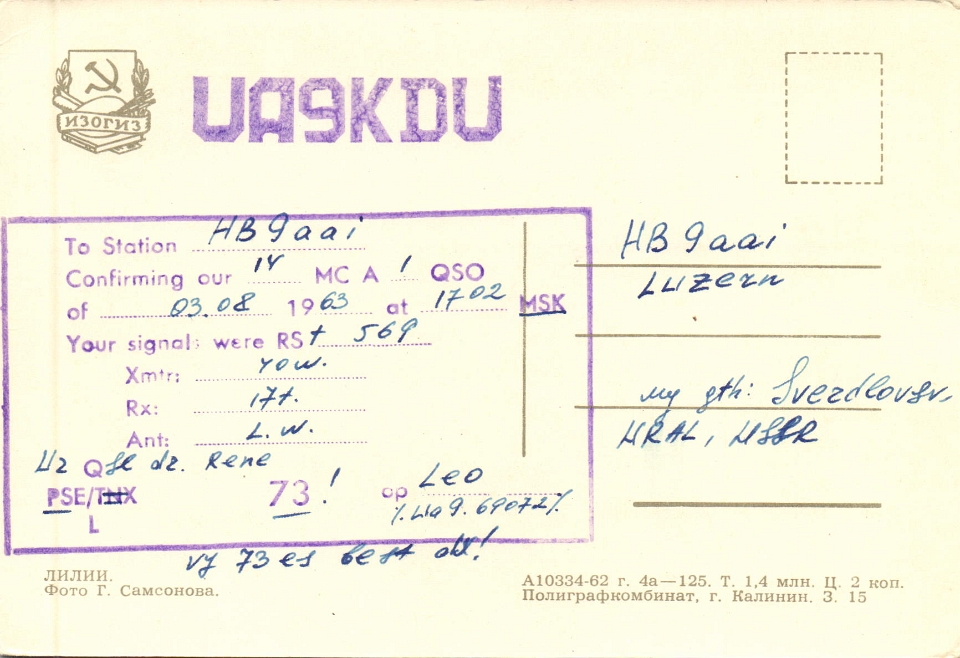 ИЗОГИЗ
UA9KDU
To Station HB9aai
Confirming our 14 MC A1 QSO
of 03.08 1963 at 1702 MSK
Your signals were RST 569
Xmtr: 40w.
Rx: 17t.
Ant: L.W.
Ur QSL dr. Rene
PSE/TNX 73! op Leo
L
/.Ua9.69072/.
vy 73 es best dx!
HB9aai
Luzern
my qth: Sverdlovsk,
URAL, USSR
ЛИЛИИ.
Фото Г. Самсонова.
А10334-62 г. 4а—125. Т. 1,4 млн. Ц. 2 коп.
Полиграфкомбинат, г. Калинин. З. 15